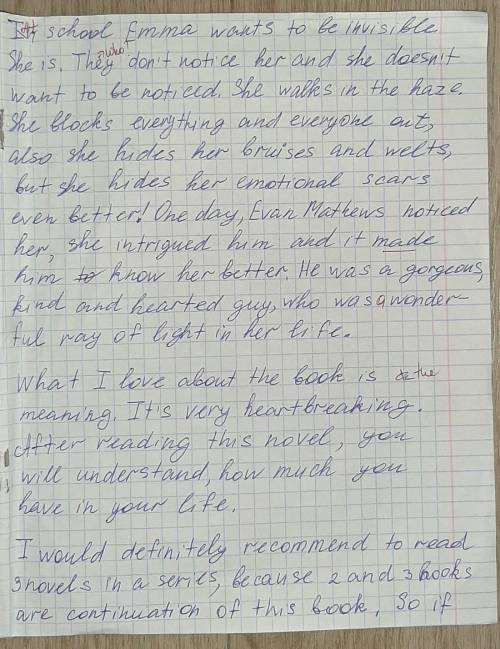 At school Emma wants to be invisible
She is. They who? don't notice her and she doesn't
want to be noticed. She walks in the haze.
She blocks everything and everyone out,
also she hides her bruises and welts,
but she hides her emotional scars
even better! One day, Evan Mathews noticed
her, she intrigued him and it made
him to know her better. He was a gorgeous,
kind and hearted guy, who was a wonder-
ful ray of light in her life.
What I love about the book is the
meaning. It's very heartbreaking.
After reading this novel, you
will understand, how much you
have in your life.
I would definitely recommend to read
3 novels in a series, because 2 and 3 books
are continuation of this book. So if